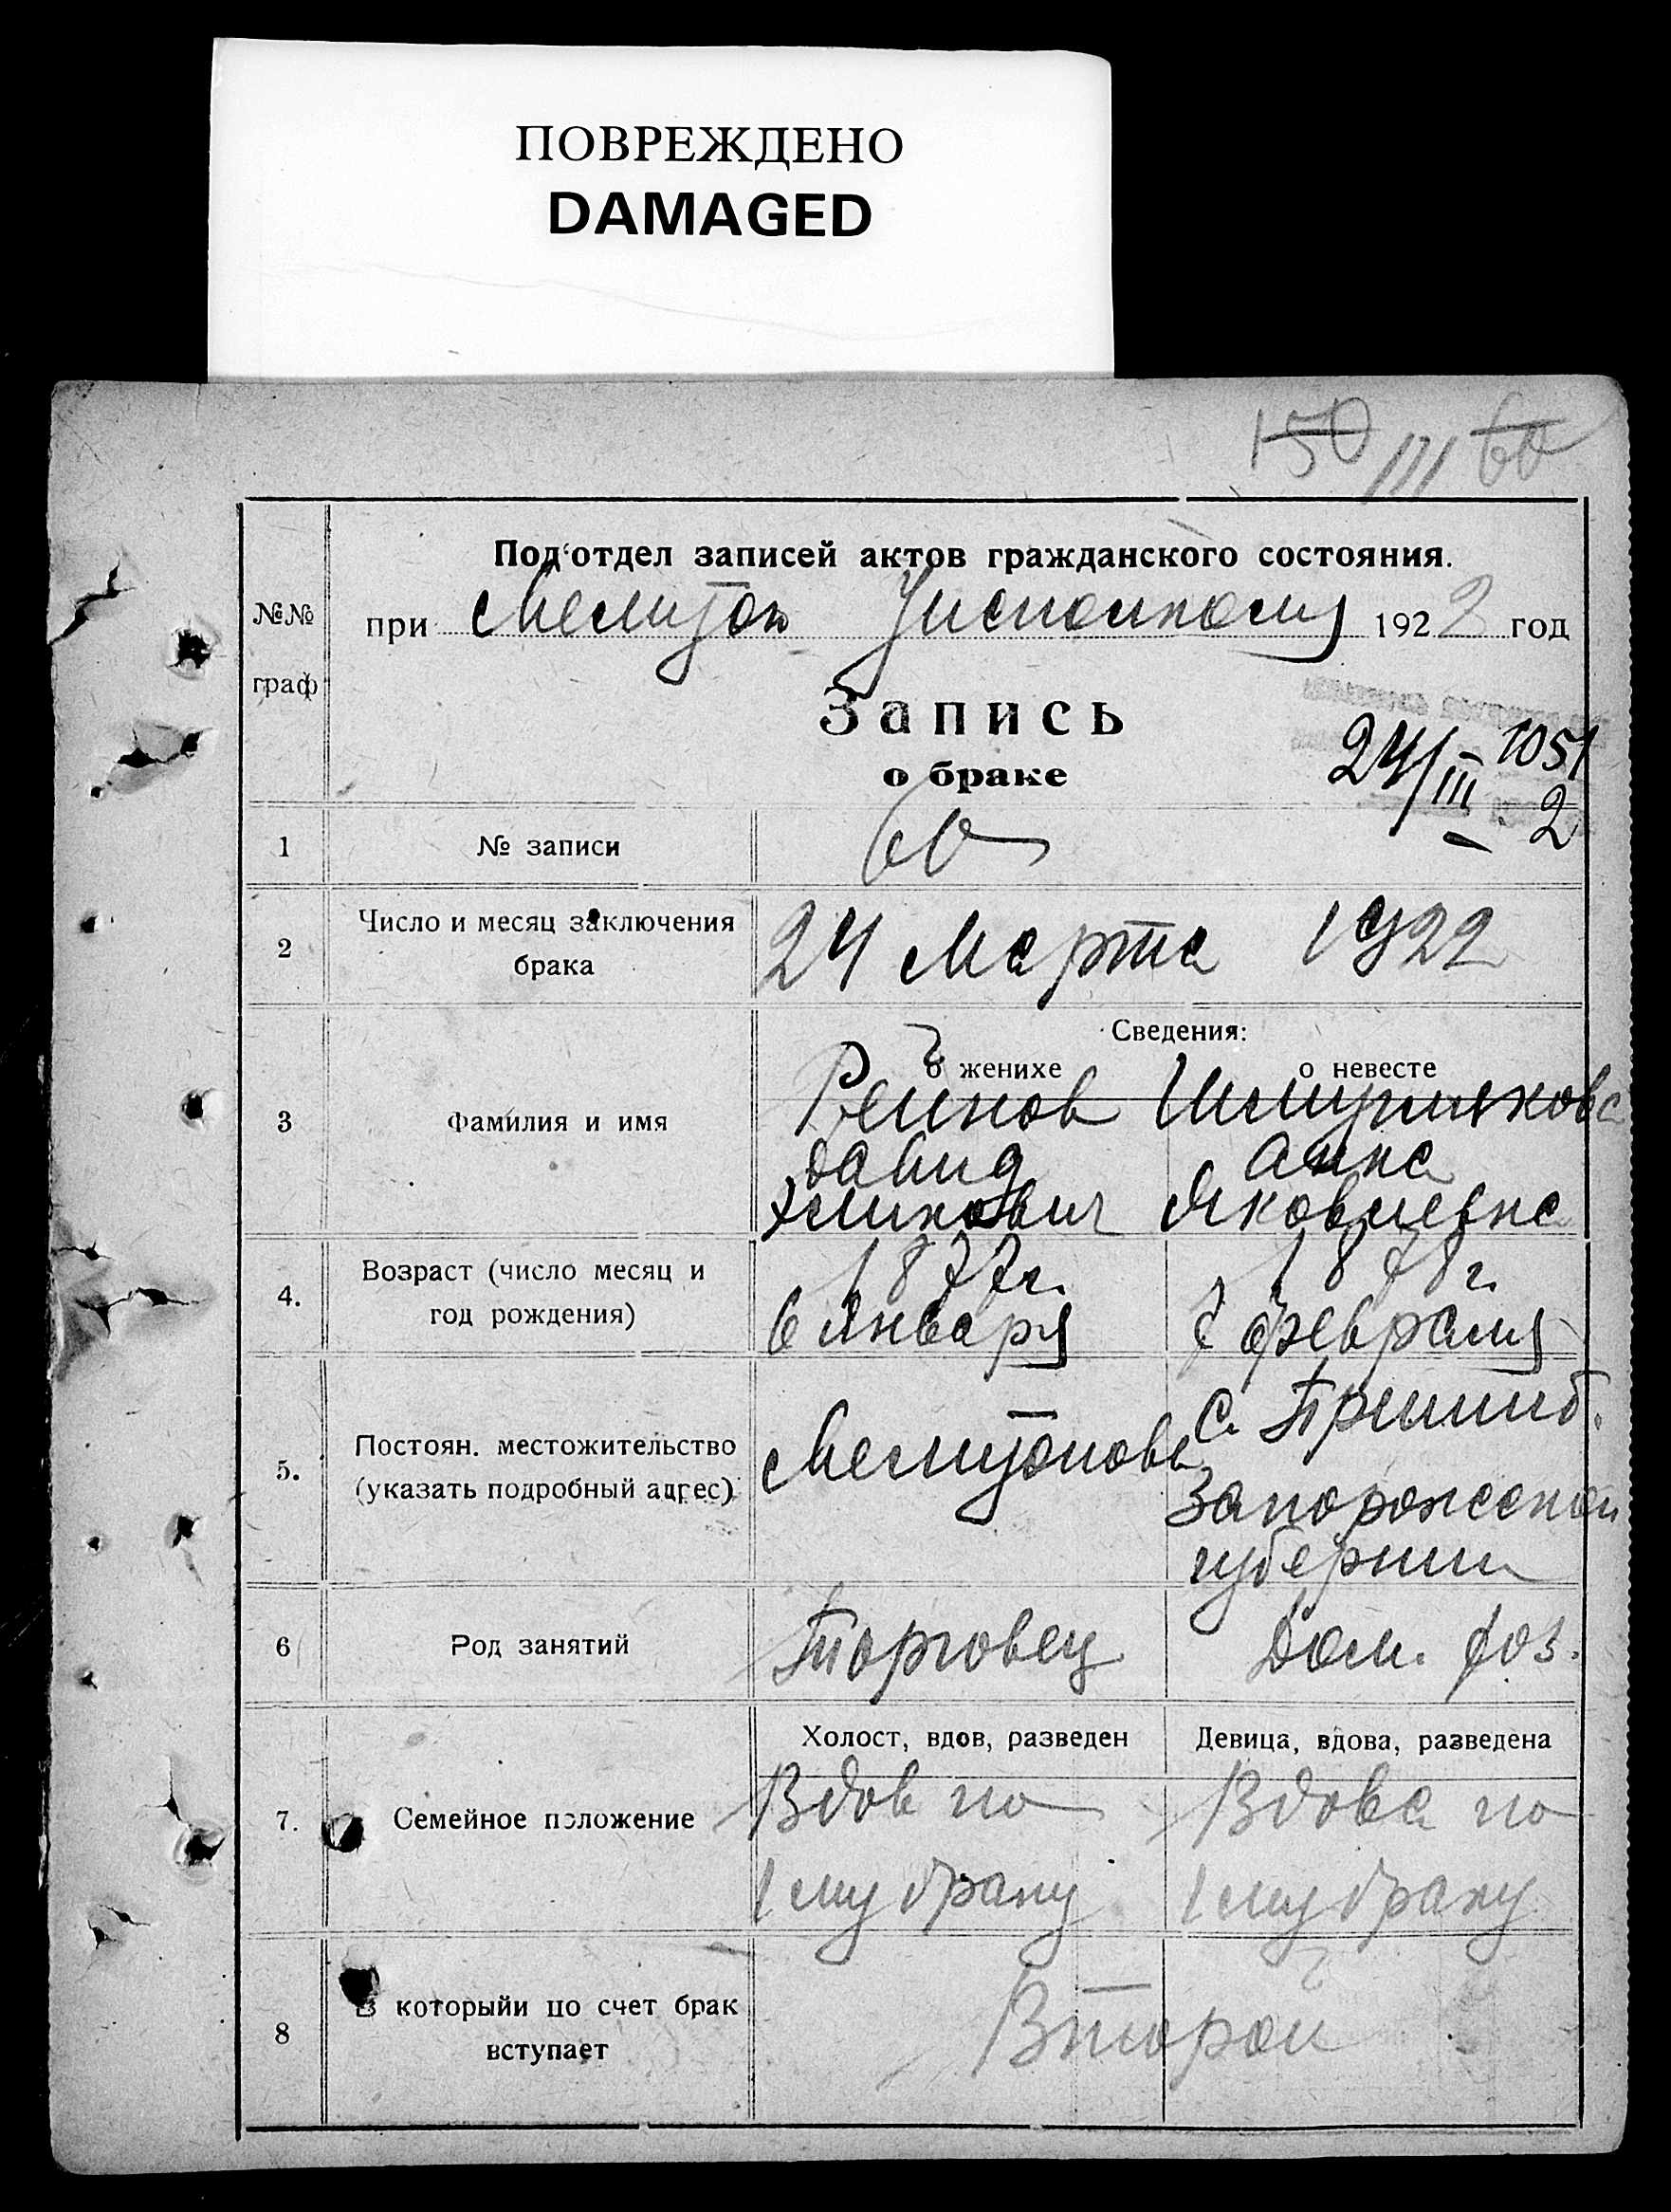 ПОВРЕЖДЕНО
DAMAGED
150 III 60
Под‘отдел записей актов гражданского состояния.
№№ граф
при Мелитоп Уисполкоме 1922 год
Запись
о браке
24/III 1051
2
1 № записи 60
2 Число и месяц заключения брака 24 Марта 1922
Сведения:
о женихе о невесте
3 Фамилия и имя
Рейнов
Давид
Яковлевна
Анна
4. Возраст (число месяц и год рождения)
1877г. 1878г.
6 января 7 февраля
5. Постоян. местожительство (указать подробный адрес)
Мелитополь
с. Пришиб.
Запорожской
губернии
6 Род занятий Торговец Дом. хоз.
Холост, вдов, разведен Девица, вдова, разведена
7. Семейное положение
Вдов по Вдова по
1му браку 1му браку
8 В которыйи по счет брак вступает Второй